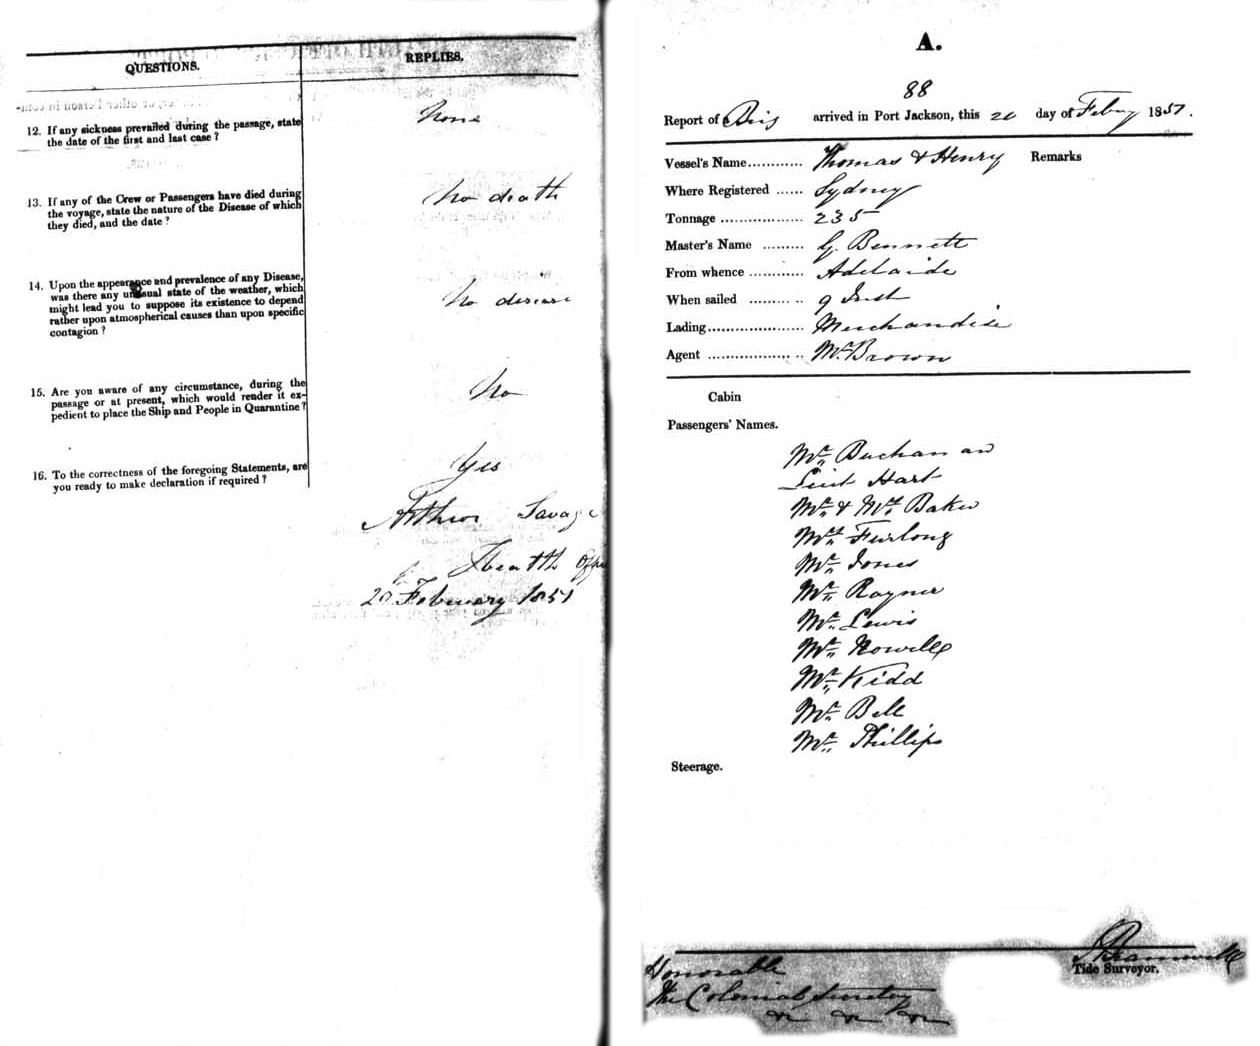 QUESTIONS.
REPLIES.
12. If any sickness prevailed during the passage, state
the date of the first and last case ?
None
13. If any of the Crew or Passengers have died during
the voyage, state the nature of the Disease of which
they died, and the date ?
No death
14. Upon the appearance and prevalence of any Disease,
was there any unusual state of the weather, which
might lead you to suppose its existence to depend
rather upon atmospherical causes than upon specific
contagion ?
No disease
15. Are you aware of any circumstance, during the
passage or at present, which would render it ex-
pedient to place the Ship and People in Quarantine ?
No
16. To the correctness of the foregoing Statements, are
you ready to make declaration if required ?
Yes
Arthur Savage
Health
20 February 1851
A.
88
Report of Brig arrived in Port Jackson, this 20 day of Febry 1851.
Vessel's Name............ Thomas & Henry Remarks
Where Registered ...... Sydney
Tonnage .................. 235
Master's Name ......... G. Bennett
From whence ............ Adelaide
When sailed ......... .. 9 Inst
Lading..................... Merchandise
Agent .................. .. Mr. Brown
Cabin
Passengers' Names.
Mr. Buchanan
Lieut Hart
Mr. & Mrs. Baker
Mrs. Furlong
Mr. Jones
Mr. Rayner
Mr. Lewis
Mr. Nowell
Mr. Kidd
Mr. Bell
Mr. Phillips
Steerage.
Tide Surveyor.
Honorable
The Colonial Secretary